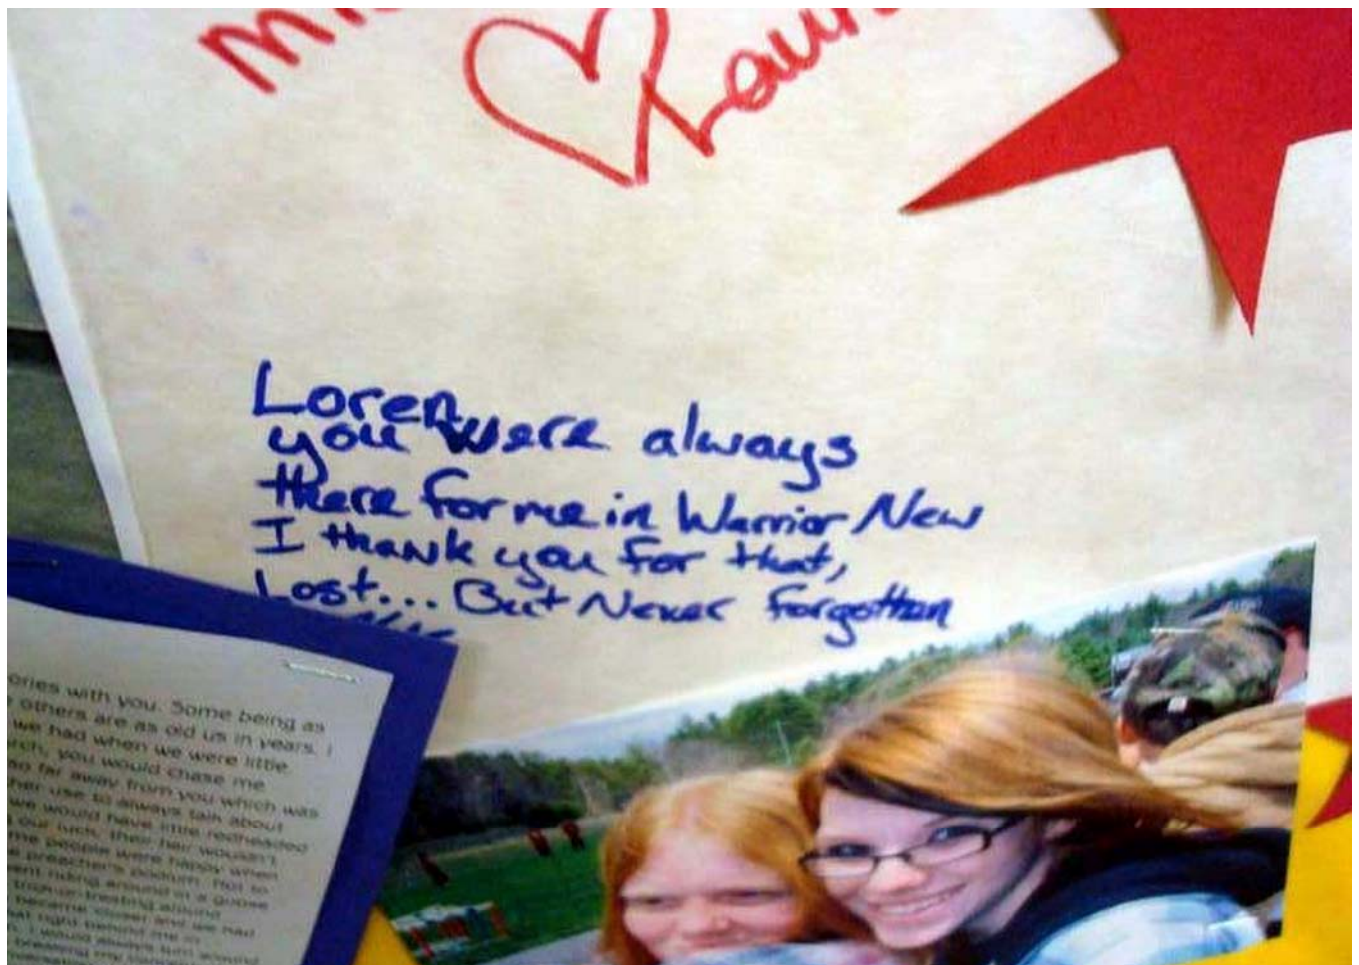 Loren,
you were always
there for me in Warrior New
I thank you for that,
Lost... But Never forgotten
ories with you. Some being as
others are as old us in years. I
we had when we were little
rch, you would chase me
so far away from you which was
her use to always talk about
we would have little redheaded
our luck, their hair wouldn't
me people were happy when
preacher's podium. Not to
ent riding around in a goose
trick-or-treating around
became closer and we had
at right behind me in
I would always turn around